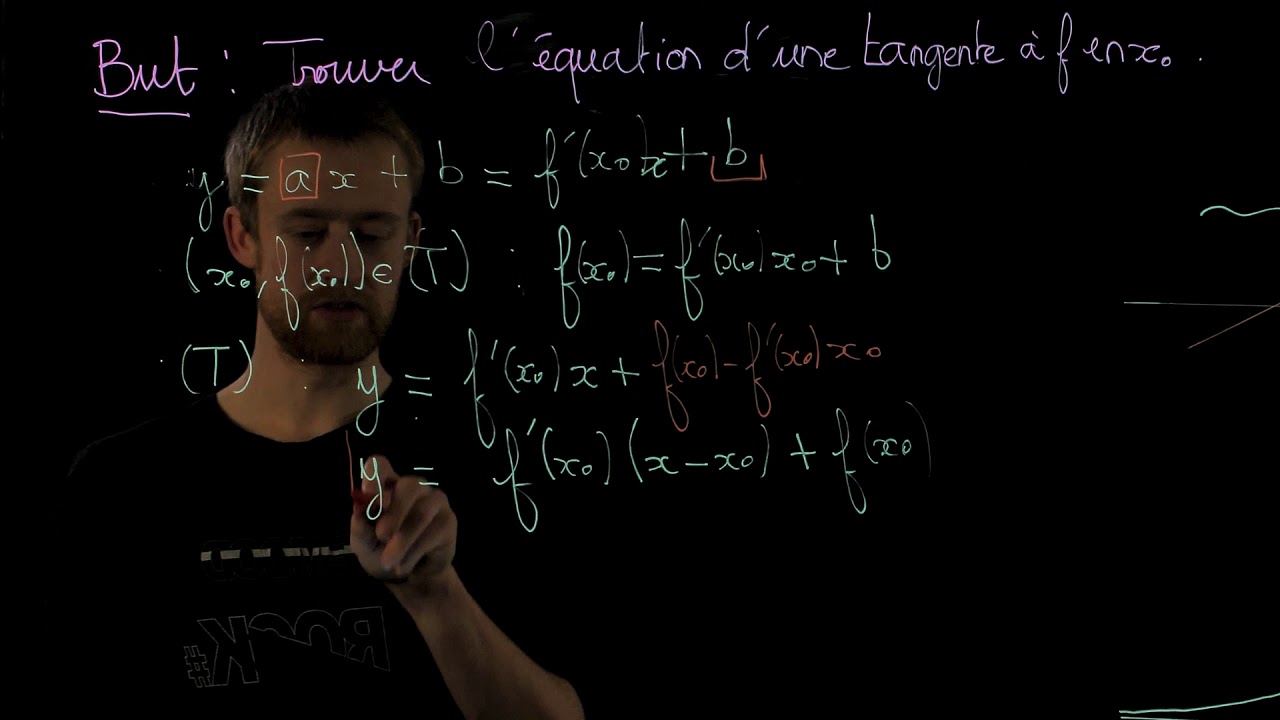 But : Trouver l'équation d'une tangente à f en x₀.
y = a x + b = f'(x₀)x + b
(x₀, f(x₀)) ∈ (T) : f(x₀) = f'(x₀)x₀ + b
(T) : y = f'(x₀)x + f(x₀) - f'(x₀)x₀
y = f'(x₀)(x - x₀) + f(x₀)
#ROCK